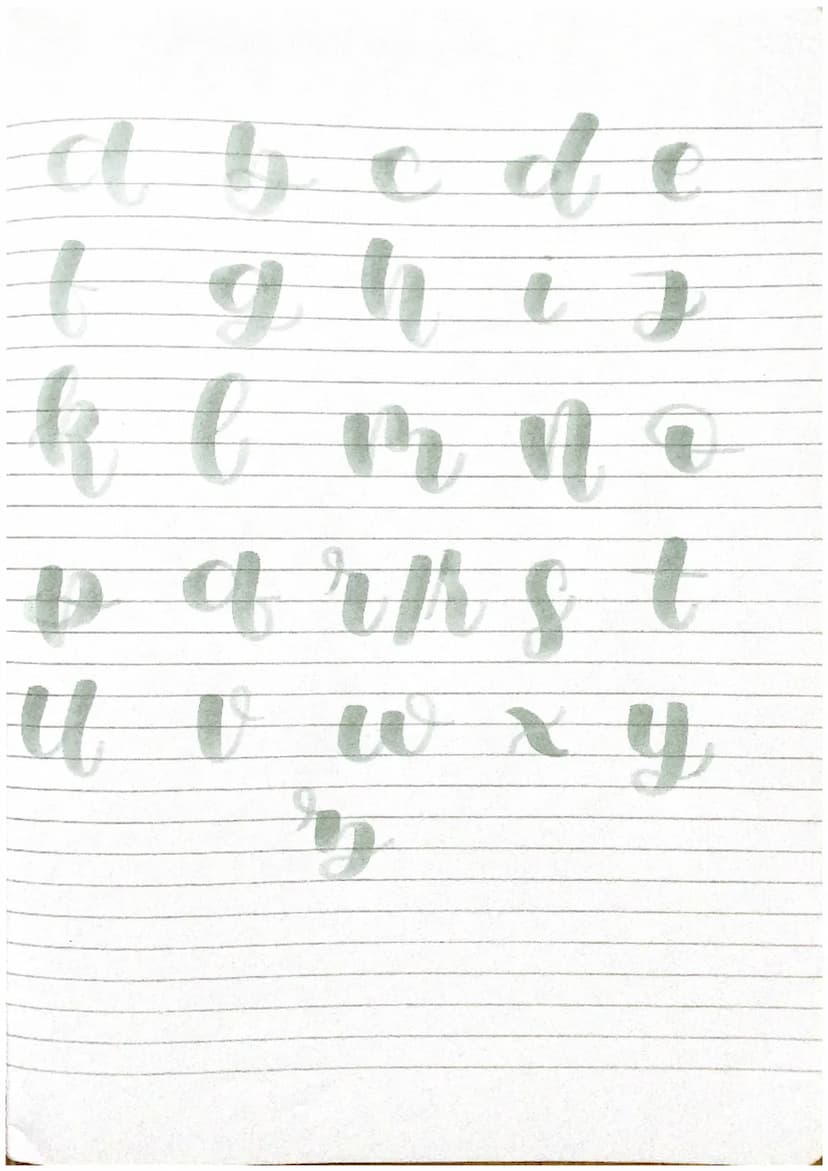 a b c d e
f g h i j
k l m n o
p q r/r s t
u v w x y
z